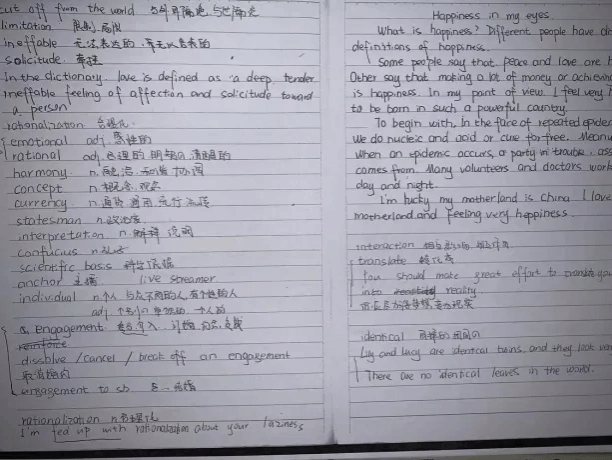 cut off from the world 与外界隔绝,与世隔绝
limitation 限制,局限
ineffable 无法表达的,
solicitude 牵挂
In the dictionary love is defined as "a deep, tender
ineffable feeling of affection and solicitude toward
a person
rationalization 合理化
emotional adj. 感性的
rational adj. 合理的 明智的 清醒的
harmony n. 融洽 和谐 协调
concept n. 概念 观念
currency n. 通货 通用 流行
statesman n. 政治家
interpretation n. 解释 说明
confucius n. 孔子
scientific basis 科学依据
anchor 主播 live streamer
individual n. 个人 与众不同的人,有个性的人
adj 个别的 单独的 一个人的
& engagement
reinforce
dissolve / cancel / break off an engagement
取消婚约
engagement to sb 与…订婚
rationalization n. 合理化
I'm fed up with rationalization about your laziness
Happiness in my eyes.
What is happiness? Different people have di
definitions of happiness.
Some people say that peace and love are h
Other say that making a lot of money or achieving
is happiness. In my point of view. I feel very h
to be born in such a powerful country.
To begin with, In the face of repeated epidem
We do nucleic and acid or cue for free. Meanw
when an epidemic occurs, a party in trouble, ass
comes from. Many volunteers and doctors work
day and night.
I'm lucky my motherland is China I love
motherland and feeling very happiness.
interaction 相互影响
translate 转化为
You should make great effort to translate you
into reality
identical 同样的 相同的
Lily and Lucy are identical twins, and they look ver
There are no identical leaves in the world.